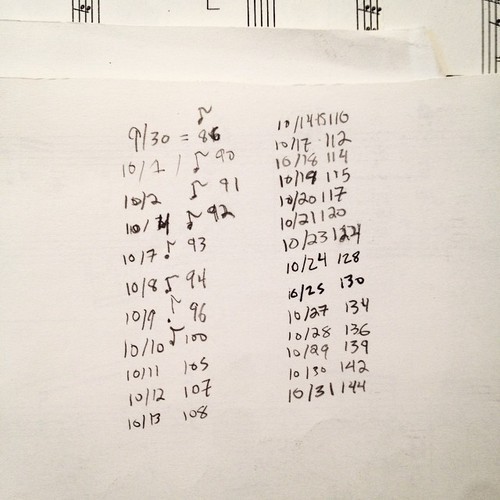 9/30 = 86
10/1 / ♪ 90
10/2 ♪ 91
10/4 ♪ 92
10/7 ♪ 93
10/8 ♪ 94
10/9 ♪ 96
10/10 ♪ 100
10/11 105
10/12 107
10/13 108
10/14-15 110
10/17 112
10/18 114
10/19 115
10/20 117
10/21 120
10/23 124
10/24 128
10/25 130
10/27 134
10/28 136
10/29 139
10/30 142
10/31 144